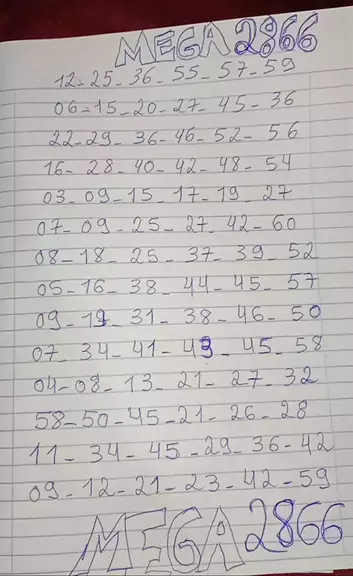 MEGA 2866
12-25-36-55-57-59
06-15-20-27-45-36
22-29-36-46-52-56
16-28-40-42-48-54
03-09-15-17-19-27
07-09-25-27-42-60
08-18-25-37-39-52
05-16-38-44-45-57
09-17-31-38-46-50
07-34-41-43-45-58
04-08-13-21-27-32
58-50-45-21-26-28
11-34-45-29-36-42
09-12-21-23-42-59
MEGA 2866